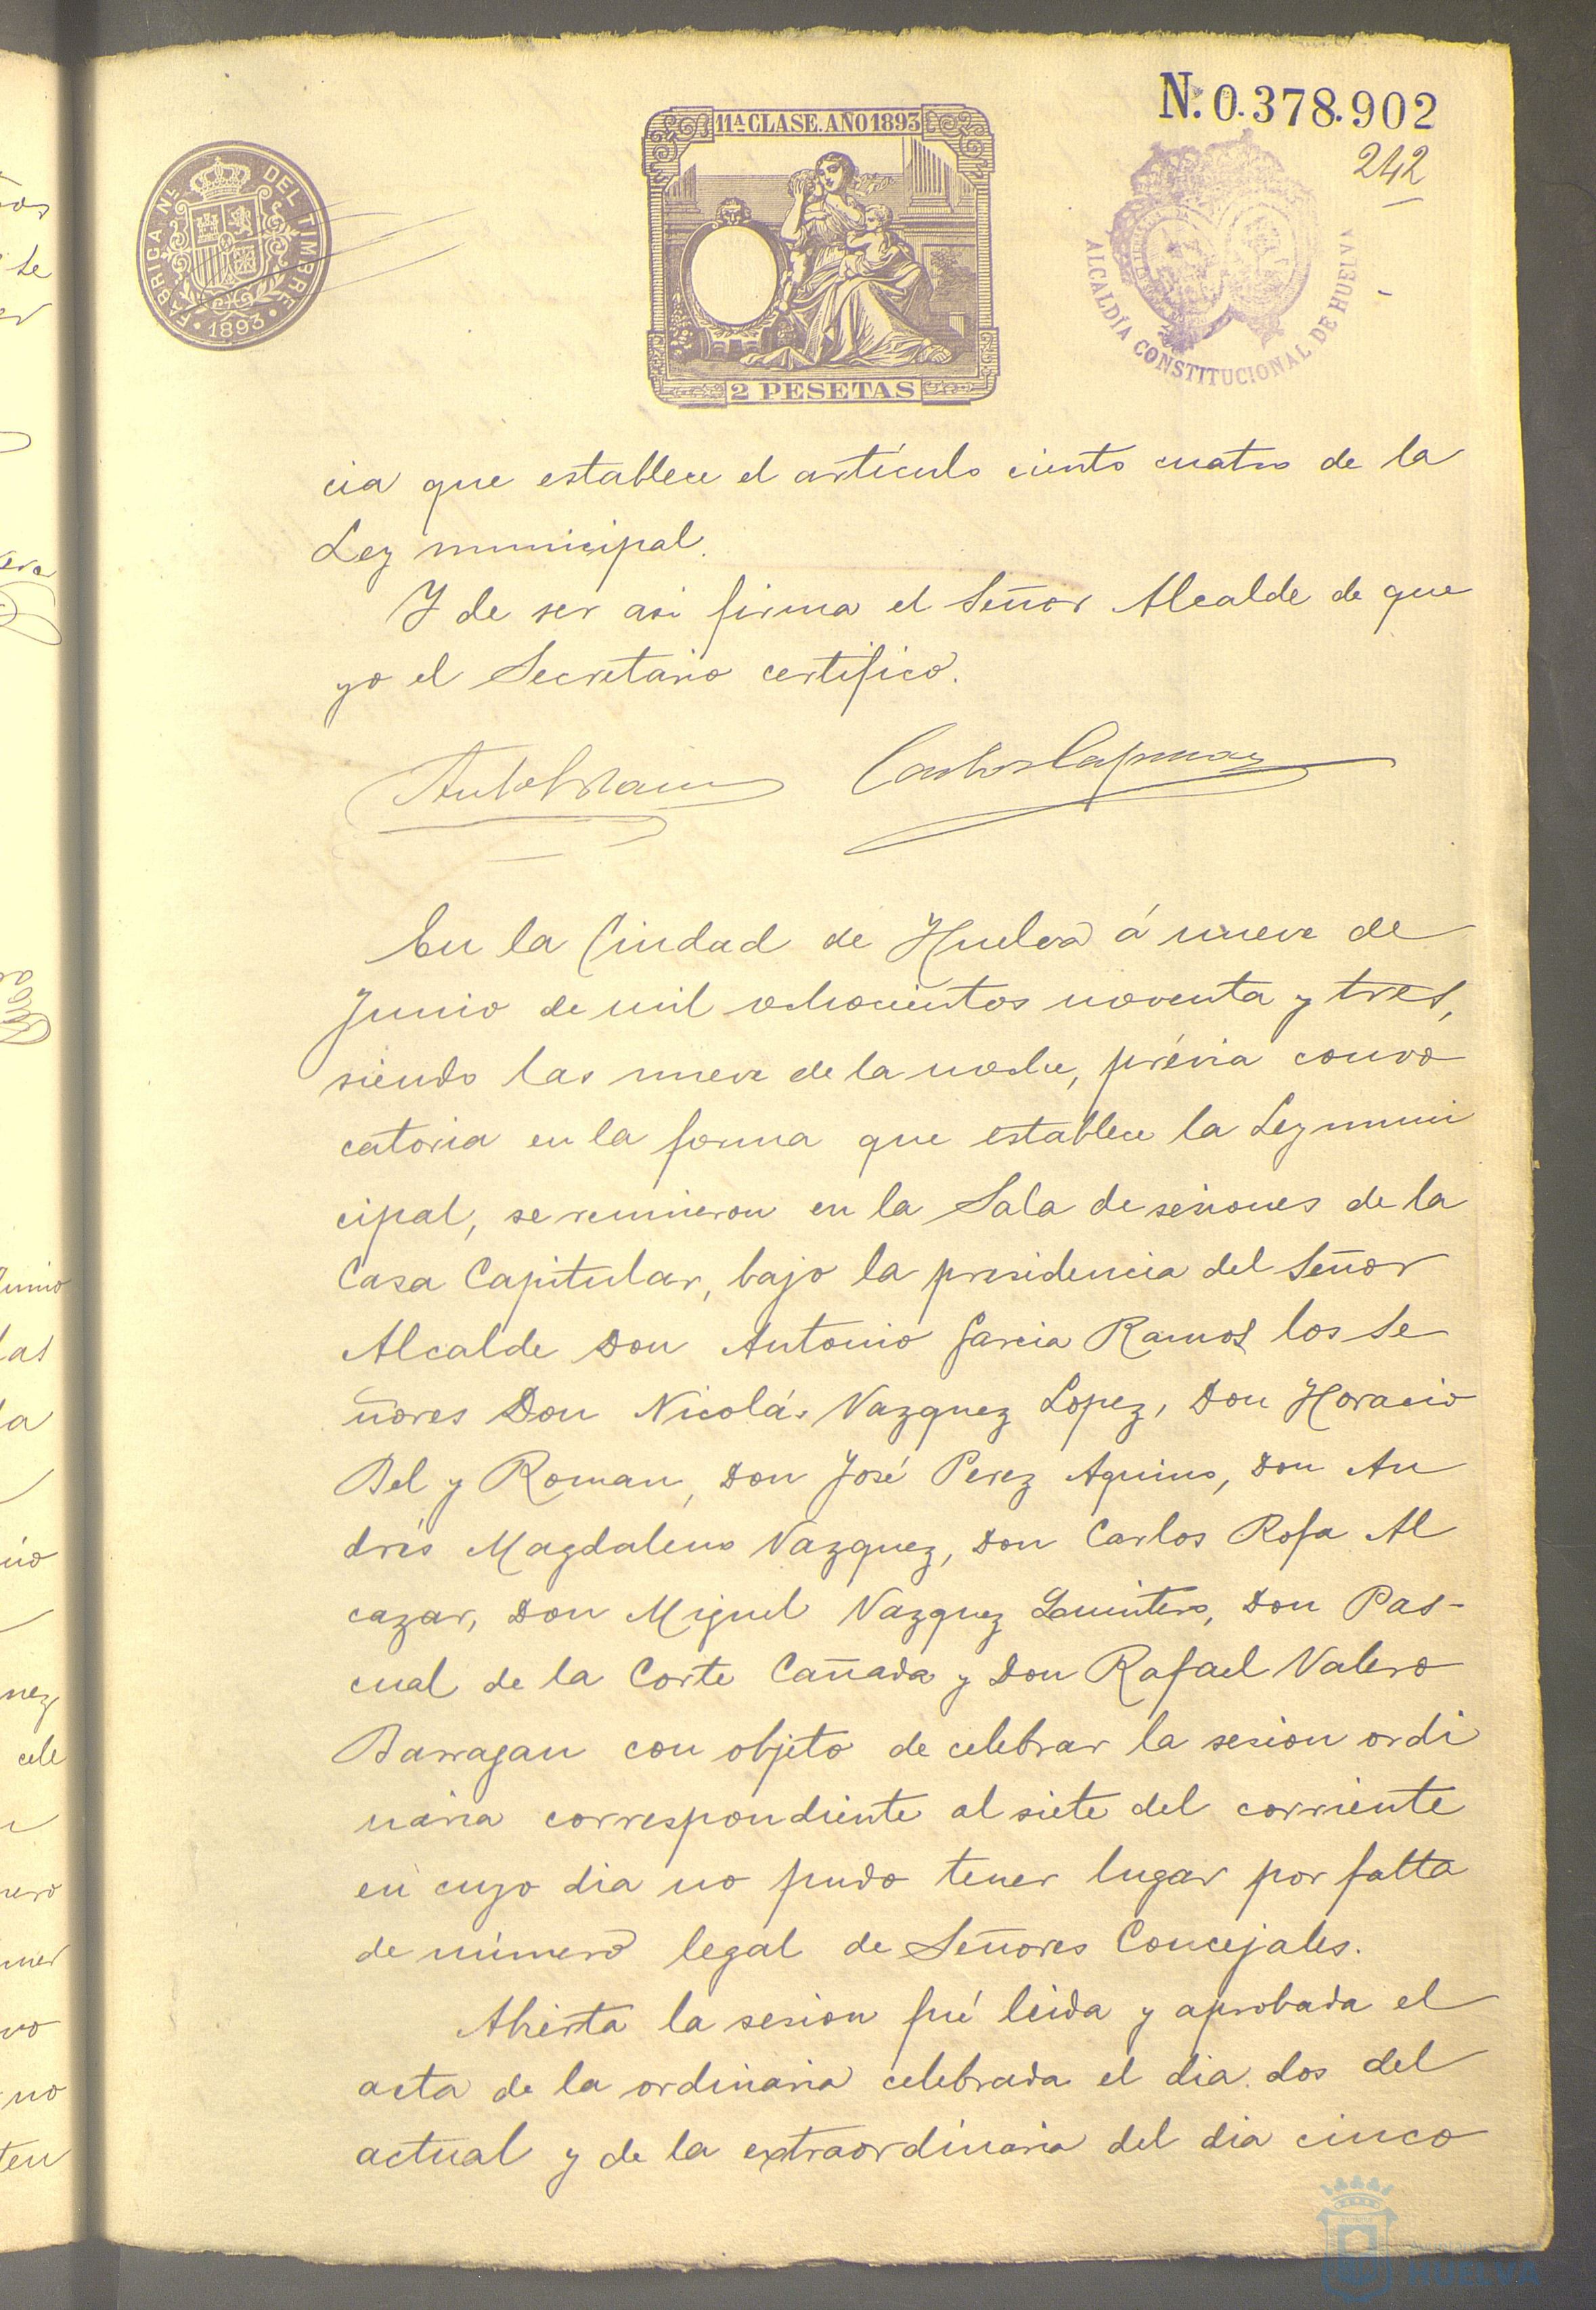 N.º 0.378.902
242
11ª CLASE. AÑO 1893
2 PESETAS
FABRICA NL. DEL TIMBRE
1893
ALCALDÍA CONSTITUCIONAL DE HUELVA
cia que establece el artículo ciento cuatro de la
Ley municipal.
Y de ser asi firma el Señor Alcalde de que
yo el Secretario certifico.
En la Ciudad de Huelva á nueve de
Junio de mil ochocientos noventa y tres,
siendo las nueve de la noche, prévia convo
catoria en la forma que establece la Ley muni
cipal, se reunieron en la Sala de sesiones de la
Casa Capitular, bajo la presidencia del Señor
Alcalde Don Antonio Garcia Ramos los Se
ñores Don Nicolás Vazquez Lopez, Don Horacio
Bel y Roman, Don José Perez Aquino, Don An
drés Magdaleno Vazquez, Don Carlos Rofa Al
cazar, Don Miguel Vazquez Quintero, Don Pas-
cual de la Corte Cañada y Don Rafael Valero
Barragan con objeto de celebrar la sesion ordi
naria correspondiente al siete del corriente
en cuyo dia no pudo tener lugar por falta
de número legal de Señores Concejales.
Abierta la sesion fué leida y aprobada el
acta de la ordinaria celebrada el dia dos del
actual y de la extraordinaria del dia cinco
HUELVA